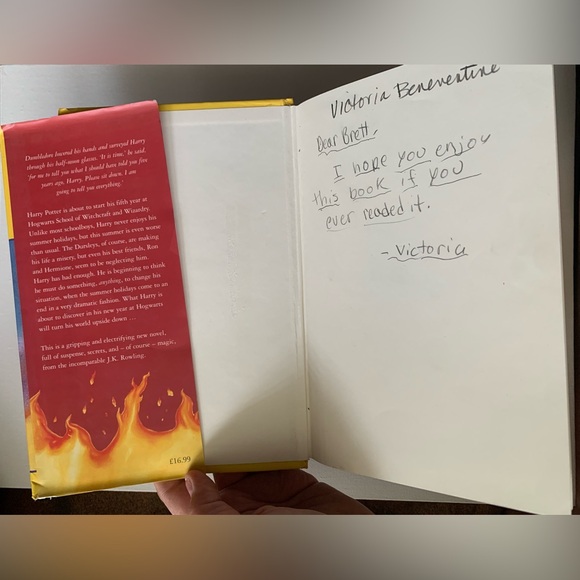 Dumbledore lowered his hands and surveyed Harry
through his half-moon glasses. 'It is time,' he said,
'for me to tell you what I should have told you five
years ago, Harry. Please sit down. I am
going to tell you everything.'
Harry Potter is about to start his fifth year at
Hogwarts School of Witchcraft and Wizardry.
Unlike most schoolboys, Harry never enjoys his
summer holidays, but this summer is even worse
than usual. The Dursleys, of course, are making
his life a misery, but even his best friends, Ron
and Hermione, seem to be neglecting him.
Harry has had enough. He is beginning to think
he must do something, anything, to change his
situation, when the summer holidays come to an
end in a very dramatic fashion. What Harry is
about to discover in his new year at Hogwarts
will turn his world upside down ...
This is a gripping and electrifying new novel,
full of suspense, secrets, and – of course – magic,
from the incomparable J.K. Rowling.
£16.99
Victoria Beneventine
Dear Brett,
I hope you enjoy
this book if you
ever readed it.
- Victoria